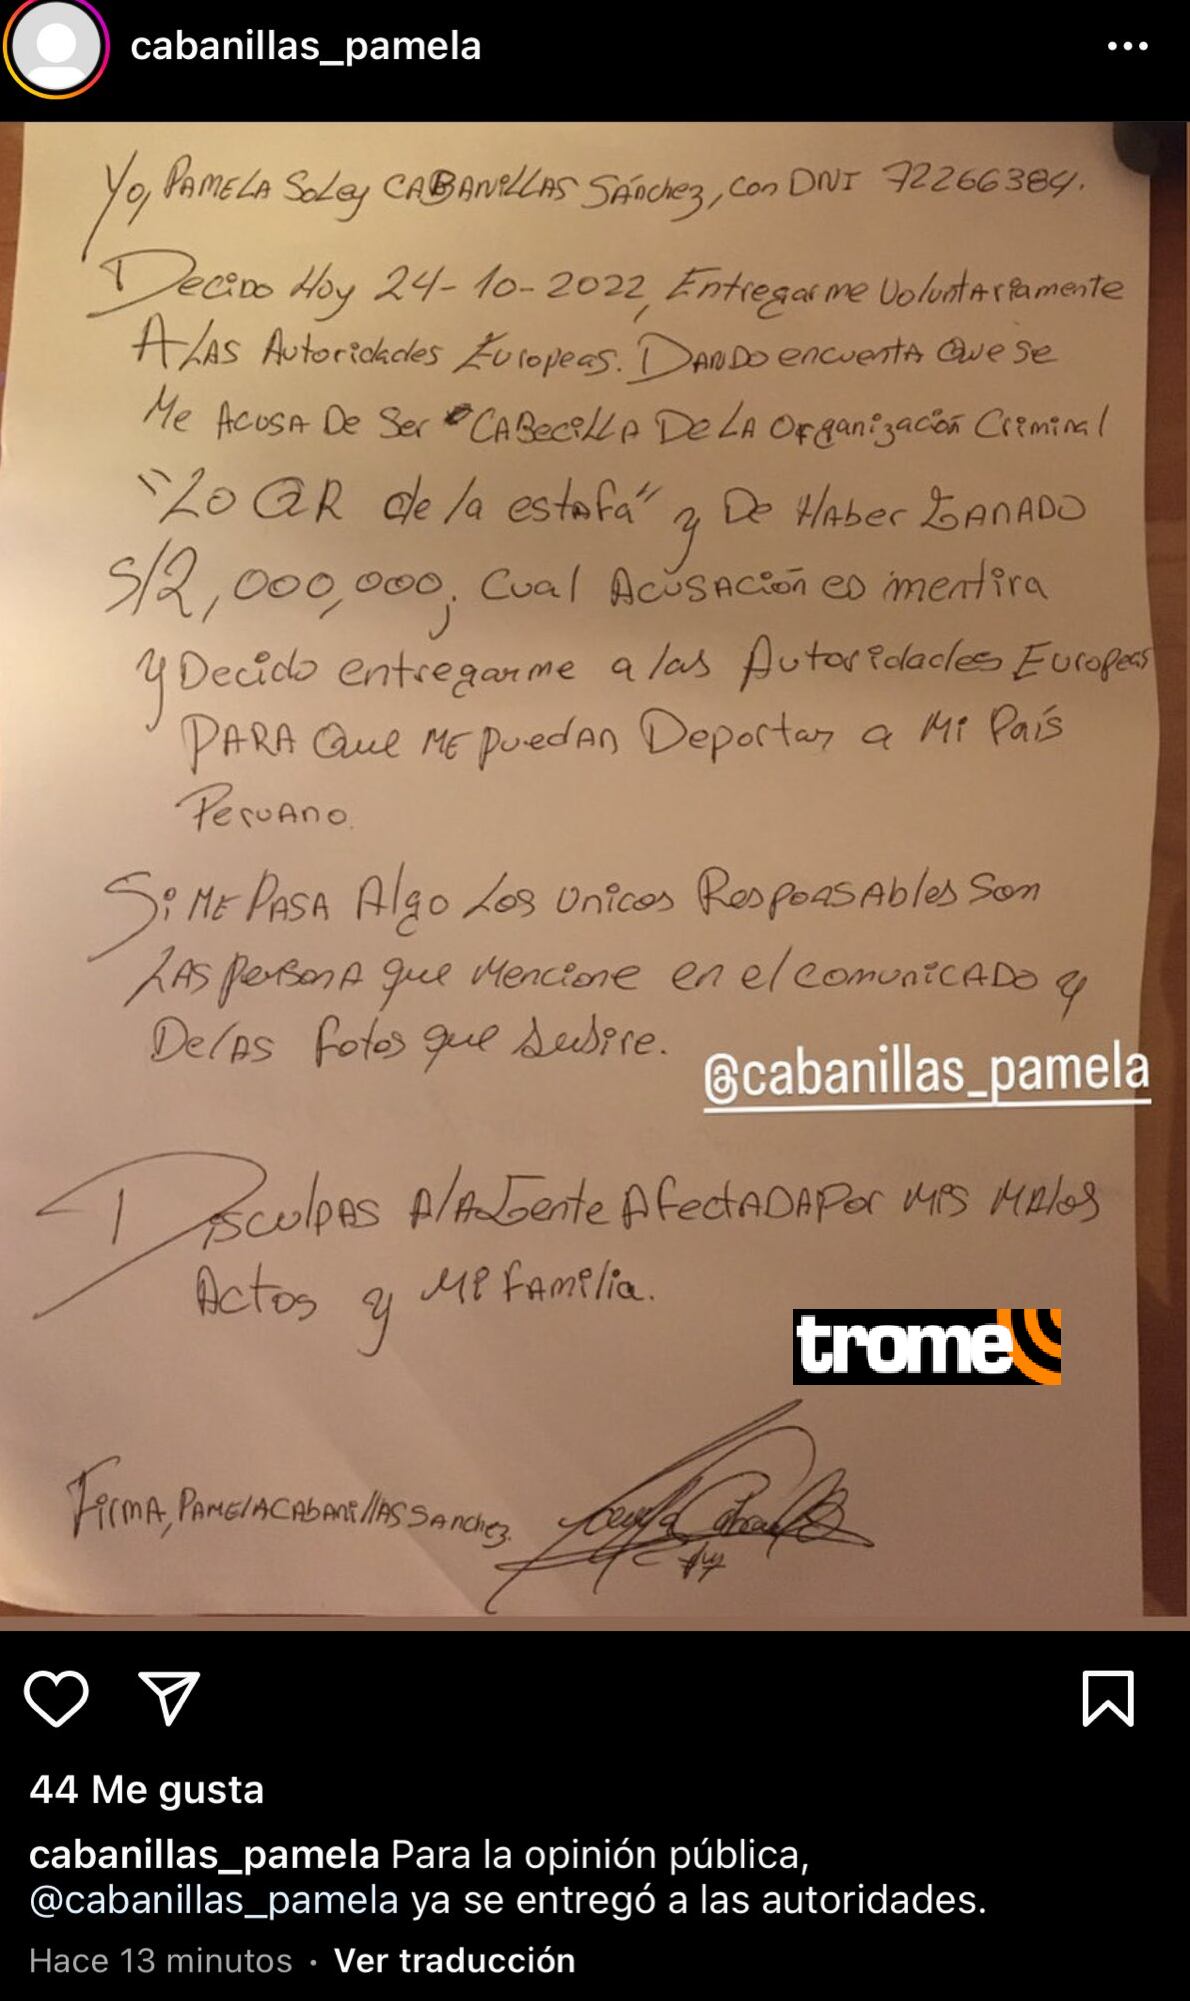 cabanillas_pamela
Yo, PAMELA Soley CABANILLAS Sánchez, con DNI 72266384.
Decido Hoy 24-10-2022, Entregarme Voluntariamente
A LAS Autoridades Europeas. DANDO encuenta Que se
Me ACUSA De Ser CABecilla De LA Organización Criminal
"LO QR de la estafa" y De HAber GANADO
S/2,000,000; Cual Acusación es mentira
y Decido entregarme a las Autoridades Europeas
PARA Que ME puedan Deportar a Mi País
Peruano.
Si ME PASA Algo Los Unicos Responsables Son
LAS persona que Mencione en el comunicado y
De las fotos que subire.
@cabanillas_pamela
Disculpas A la Gente Afectada Por mis malos
Actos y Mi familia.
trome
Firma, PAMELA CAbAnillAS SAnchez.
44 Me gusta
cabanillas_pamela Para la opinión pública,
@cabanillas_pamela ya se entregó a las autoridades.
Hace 13 minutos · Ver traducción